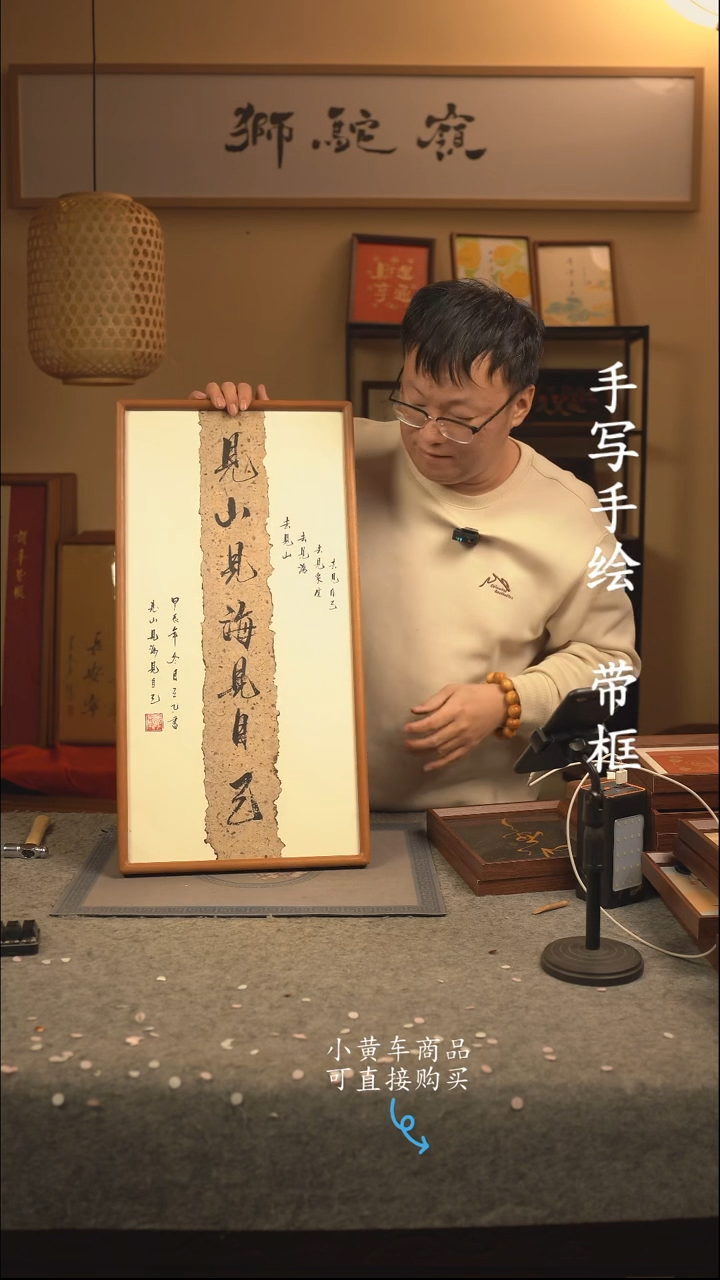 獅駝嶺
見山見海見自己
去見山
去見海
去見眾生
去見自己
甲辰年冬月
見山見海見自己
手写手绘 带框
小黄车商品
可直接购买